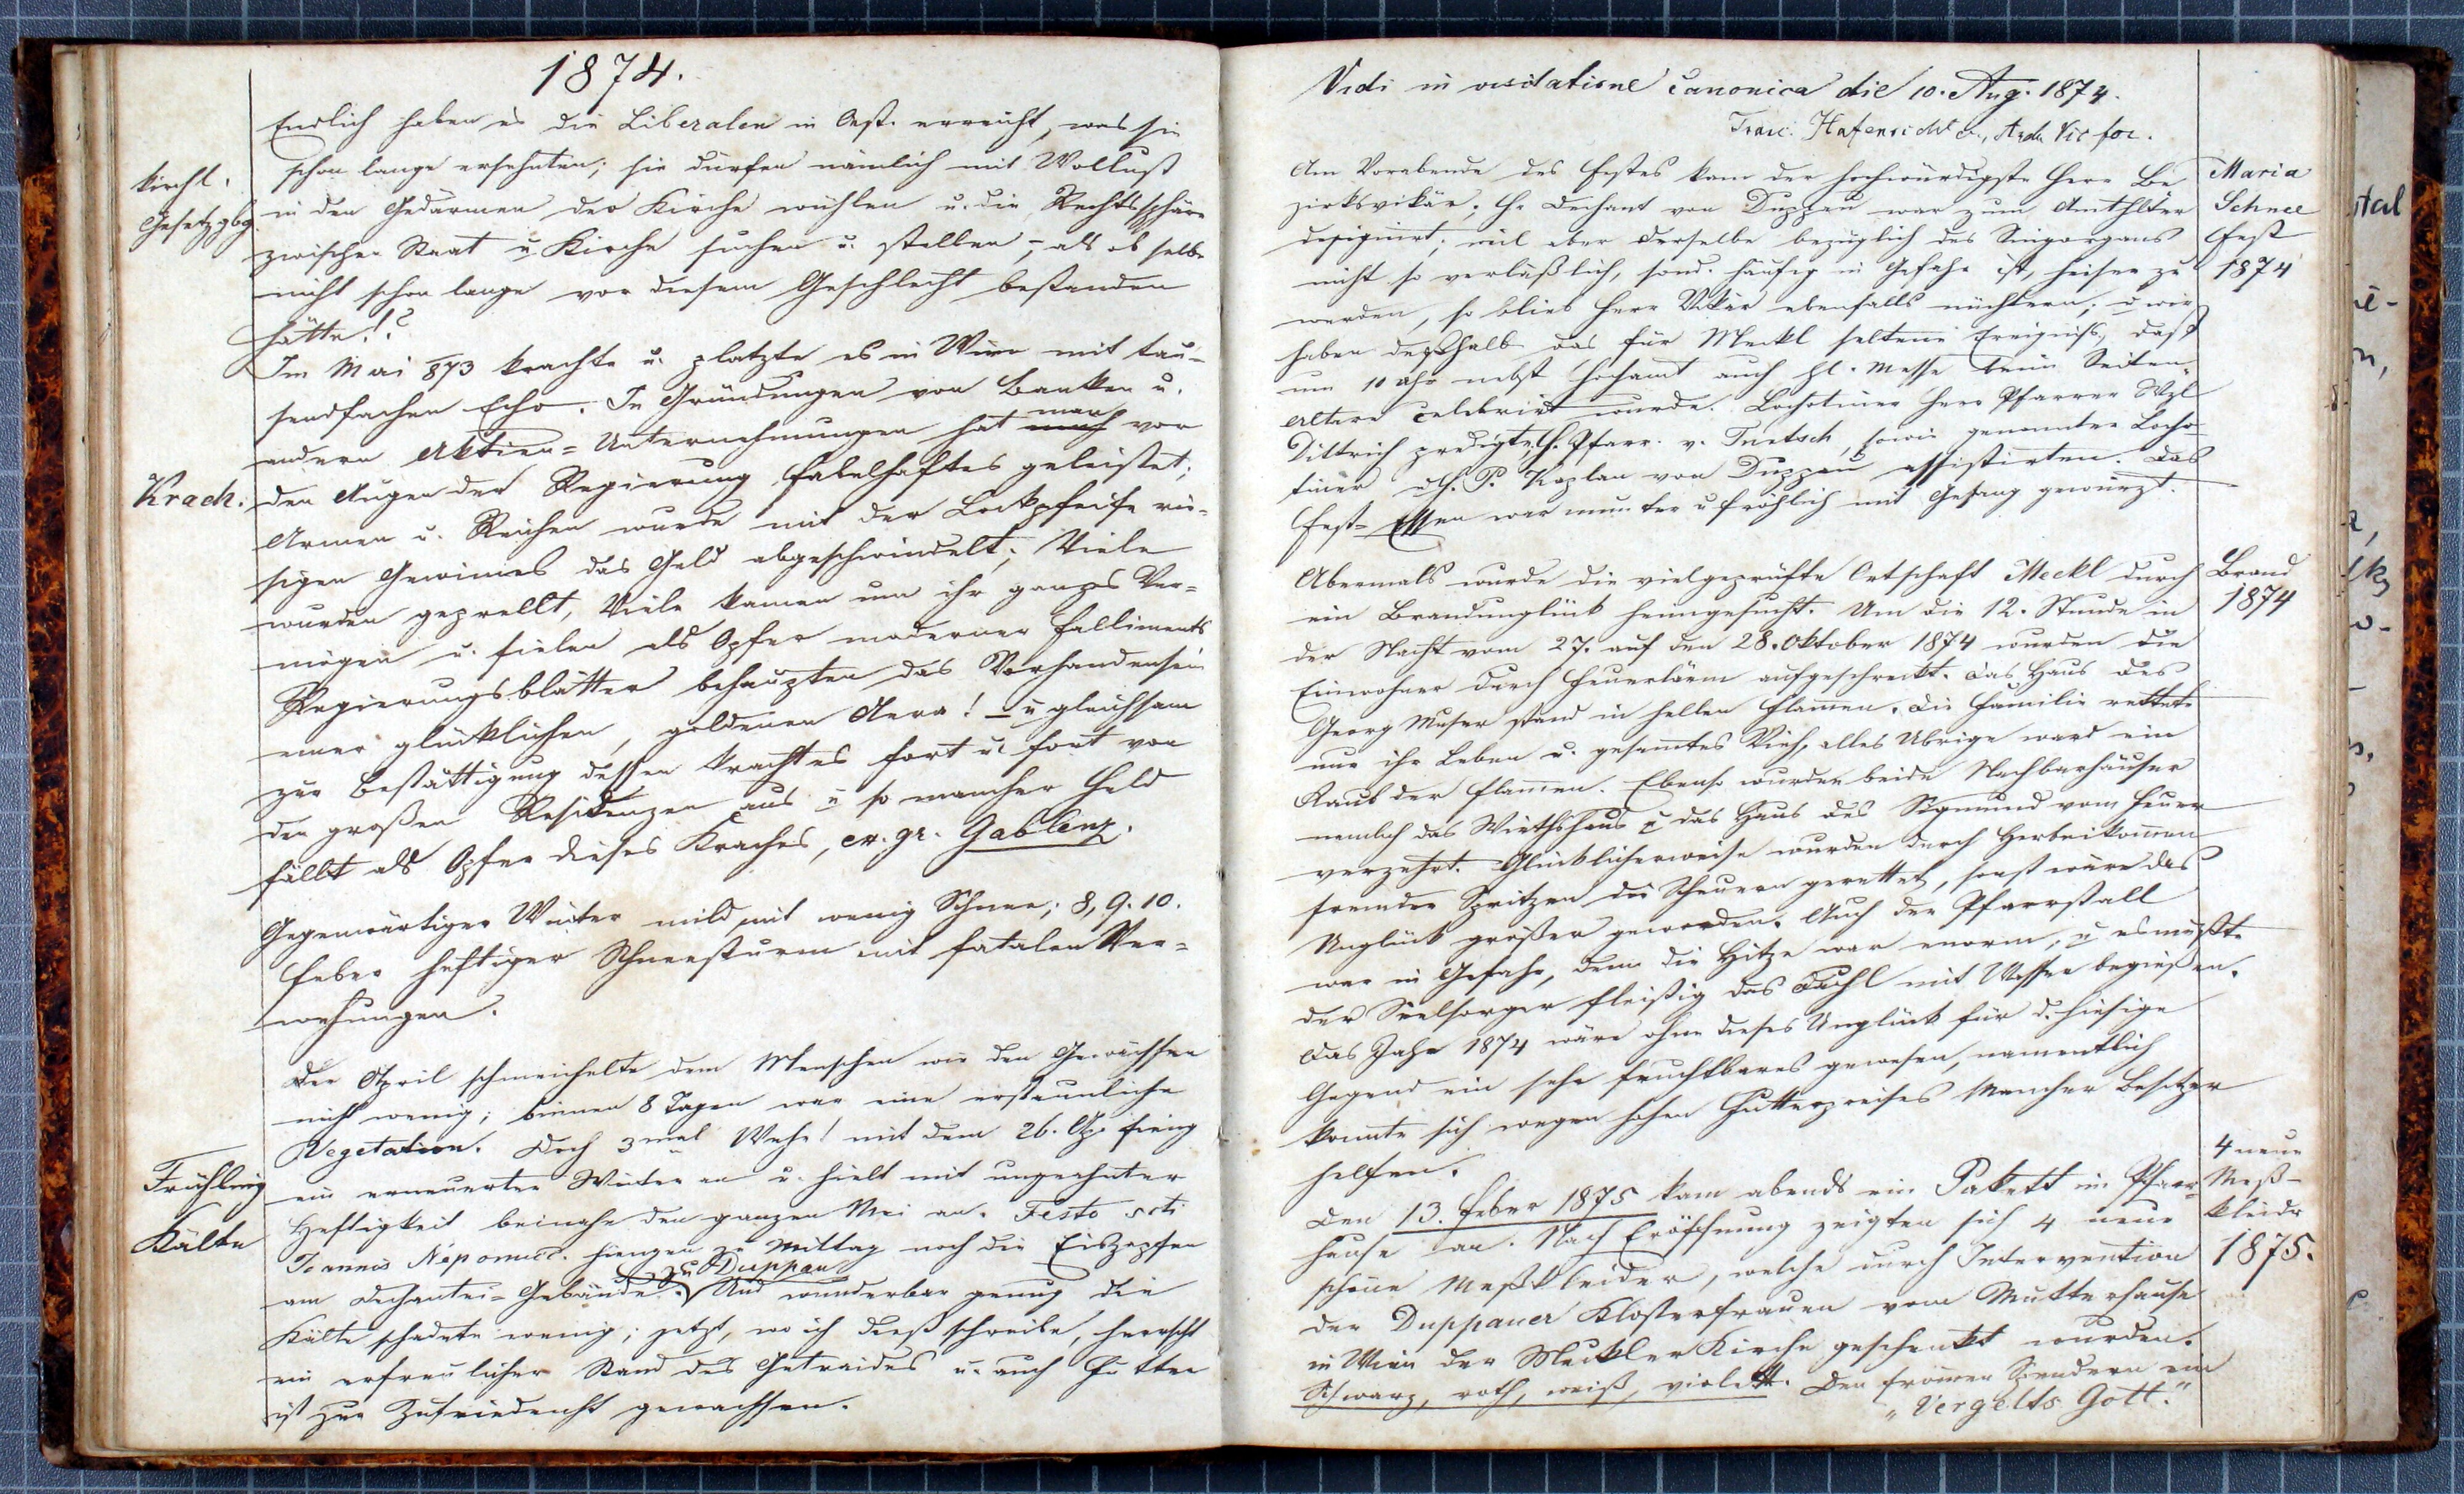 1874.
Endlich haben es die Liberalen in Oest. erreicht, was sie
schon lange ersehnten; sie dürfen nämlich mit Wollust
kirchl.
Gesetzgbg.
in den Gedärmen der Kirche wühlen u. die Rechtssphäre
zwischen Staat u Kirche suchen u. stellen, – als ob selbe
nicht schon lange vor diesem Geschlecht bestanden
hätte!?
Im Mai 873 krachte u. platzte es in Wien mit tau-
sendfachen Echo. In Gründungen von Banken u.
andern Aktien-Unternehmungen hat man vor
Krach.
den Augen der Regierung fabelhaftes geleistet;
Armen u. Reichen wurde mit der Lockpfeife rie-
sigen Gewinnes das Geld abgeschwindelt; Viele
wurden geprellt, Viele kamen um ihr ganzes Ver-
mögen u. fielen als Opfer moderner Falliments
Regierungsblätter behaupten das Vorhandensein
einer glücklichen, goldenen Aera! – u gleichsam
zur Bestättigung dessen kracht es fort u fort von
den großen Residenzen aus u so mancher Held
fällt als Opfer dieses Kraches, ex. gr. Gablenz.
Gegenwärtiger Winter mild, mit wenig Schnee; 8, 9. 10.
Feber heftiger Schneesturm mit fatalen Ver-
wehungen.
Der April schmeichelte dem Menschen wie den Gewächsen
nicht wenig; binnen 8 Tagen war eine erstaunliche
Vegetation. Doch 3mal Wehe! mit dem 26. Ap. fieng
Frühling
Kälte
ein erneuerter Winter an u. hielt mit ungeahnter
Heftigkeit beinahe den ganzen Mai an. Festo scti
Joannis Nepomuc. hiengen zu Mittag noch die Eiszapfen
am Dechantei-Gebäude zu Duppau. Und wunderbar genug die
Kälte schadete wenig; jetzt, wo ich dieß schreibe, herrscht
ein erfreulicher Stand des Getraides u. auch Futter
ist zur Zufriedenht gewachsen.
Vidi in visitatione canonica die 10. Aug. 1874.
Franc. Hafenricht, Vic for.
Maria
Schnee
Fest
1874
Am Vorabende des Festes kam der hochwürdigste Herr Be
zirksvikär; H. Dechant von Duppau war zum
designirt; weil aber derselbe bezüglich des Singorgans
nicht so verläßlich, sond. häufig in Gefahr ist, heiser zu
werden, so blieb Herr Vikär ebenfalls nüchtern; u wir
haben deßhalb das für Meckl seltene Ereigniß, daß
um 10 Uhr nebst Hochamt auch hl. Messe beim Seiten-
Altare celebrirt wurde. Lochotiner Herr Pfarrer
Dittrich predigte, H. Pfarr. v. Tuetsch, sowie genannter Locho-
tiner u H. P. Kaplan von Duppau assistirten. Das
Fest-Essen war munter u fröhlich mit Gesang gewürzt.
Brand
1874
Abermals wurde die vielgeprüfte Ortschaft Meckl durch
ein Brandunglück heimgesucht. Um die 12. Stunde in
der Nacht vom 27. auf den 28. Oktober 1874 wurden die
Einwohner durch Feuerlärm aufgeschreckt. Das Haus des
Georg Muser stand in hellen Flamen. Die Familie rettete
nur ihr Leben u. gesamtes Vieh, alles Übrige ward ein
Raub der Flamen. Ebenso wurden beide Nachbarhäuser
nemlich das Wirthshaus u das Haus des Sigmund vom Feuer
verzehrt. Glücklicherweise wurden durch Herbeikomen
fremder Spritzen die Scheuern gerettet, sonst wäre das
Unglück größer geworden. Auch der Pfarrstall
war in Gefahr, denn die Hitze war enorm, u es mußte
der Seelsorger fleißig das Dachl mit Wasser begießen.
Das Jahr 1874 wäre ohne dieses Unglück für d. hiesige
Gegend ein sehr fruchtbares gewesen, namentlich
konnte sich wegen hohen Futterpreises Mancher Besitzer
helfen.
4 neue
Meß-
kleidr
1875.
Den 13. Feber 1875 kam abends ein Pakett im Pfarr-
hause an. Nach Eröffnung zeigten sich 4 neue
schöne Meßkleider, welche durch Intervention
der Duppauer Klosterfrauen vom Mutterhause
in Wien der Meckler Kirche geschenkt wurden.
Schwarz, roth, weiß, violett. Den fromen Spendern ein
"Vergelts Gott."